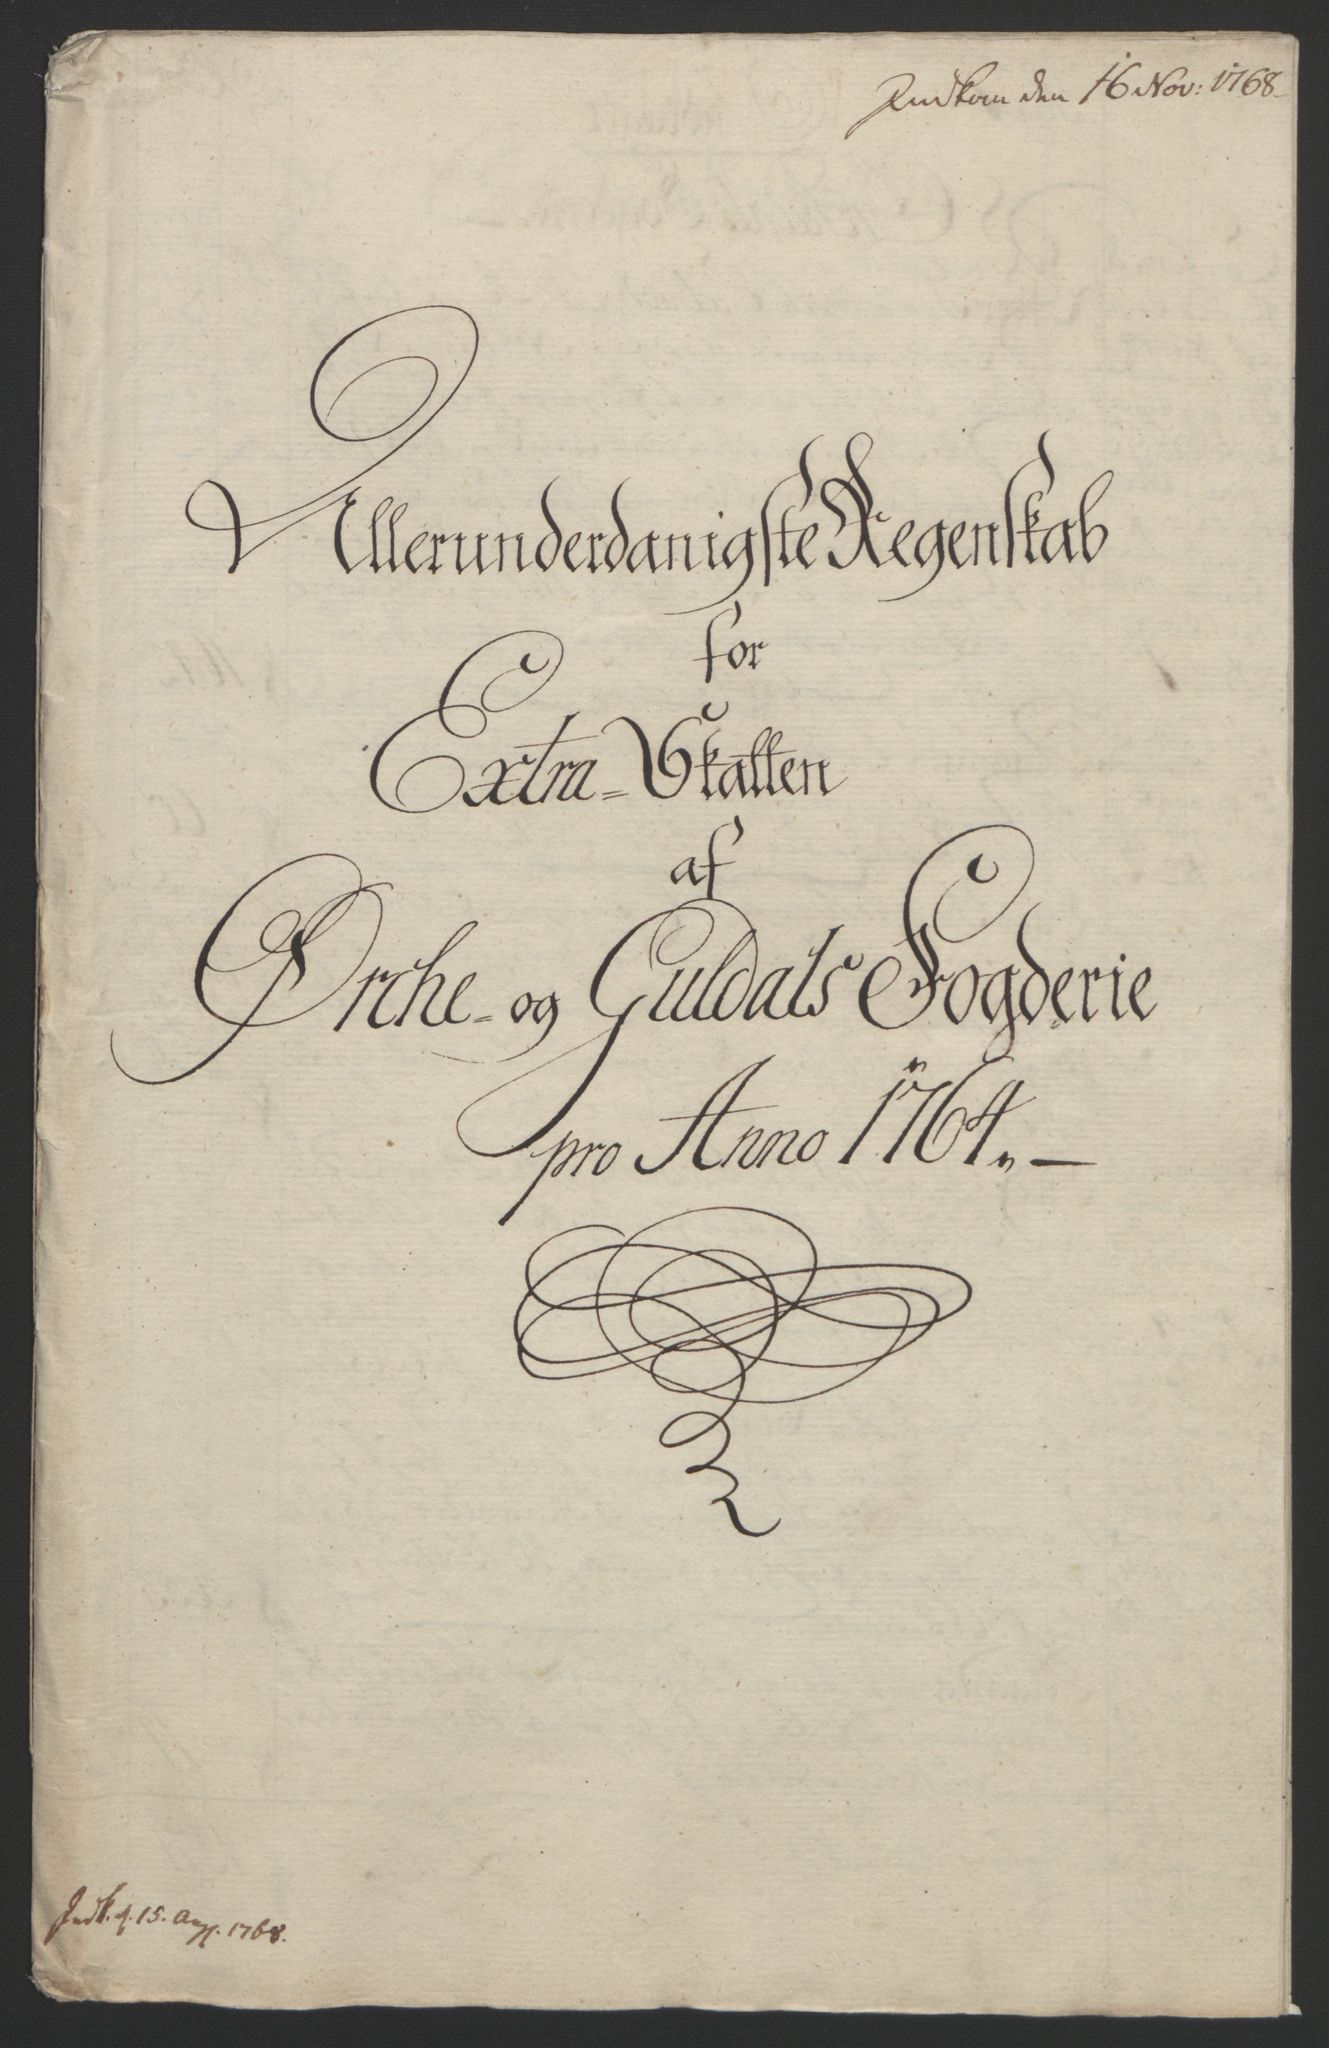 Indkom den 16 Nov: 1768
Allerunderdanigste Regenskab
for
Extra-Skatten
af
Orche- og Guldals Fogderie
pro Anno 1764.
Indk. d. 15. Aug. 1768.